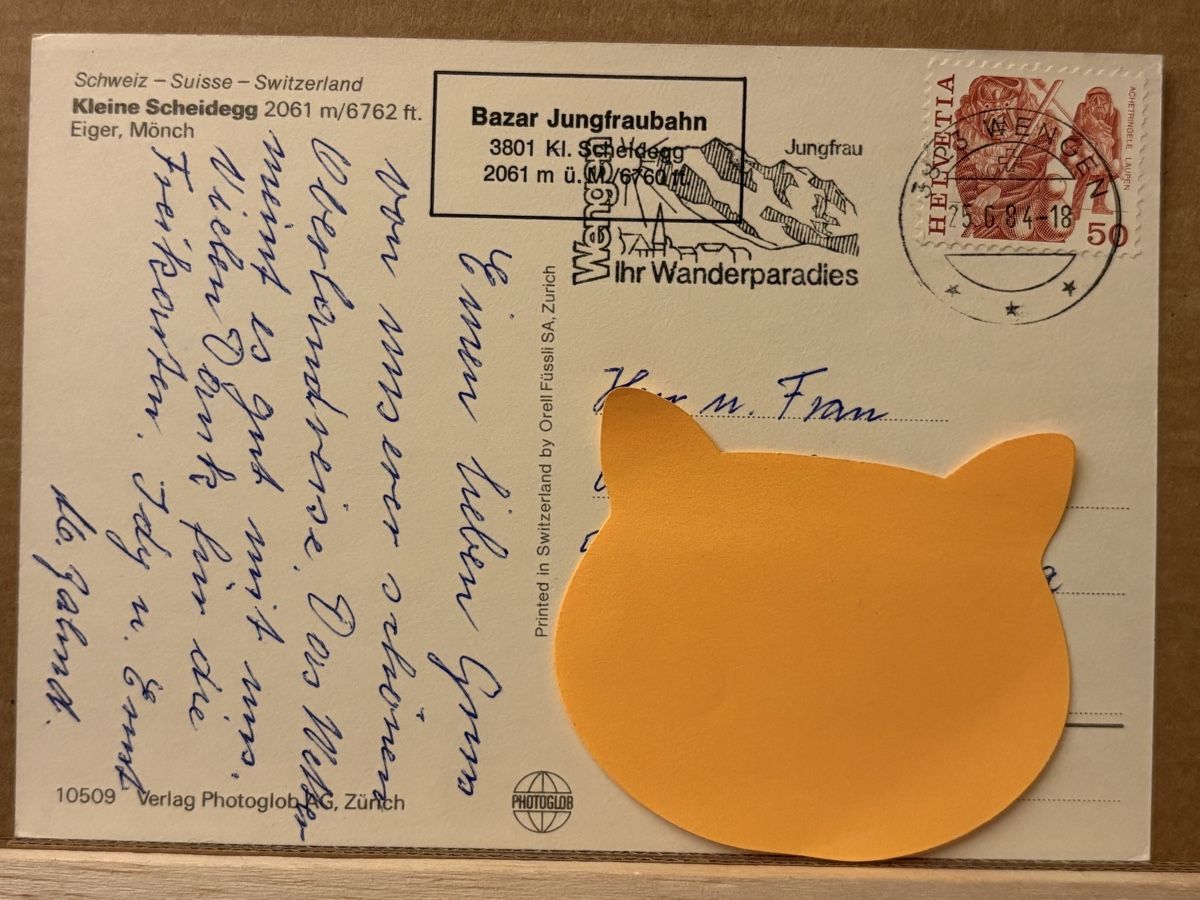 Schweiz – Suisse – Switzerland
Kleine Scheidegg 2061 m/6762 ft.
Eiger, Mönch
Bazar Jungfraubahn
3801 Kl. Scheidegg
2061 m ü. M./6760 ft
Wengen
Jungfrau
Ihr Wanderparadies
HELVETIA
ACHETRINGELE LAUPEN
50
3823 WENGEN
25.6.84-18
Einen lieben Gruss
von unserer schönen
Oberlandreise. Das Wetter
meint es gut mit uns.
Vielen Dank für die
Freikarten. Idy u. Ernst
Printed in Switzerland by Orell Füssli SA, Zurich
Herr u. Frau
10509 Verlag Photoglob AG, Zürich
PHOTOGLOB